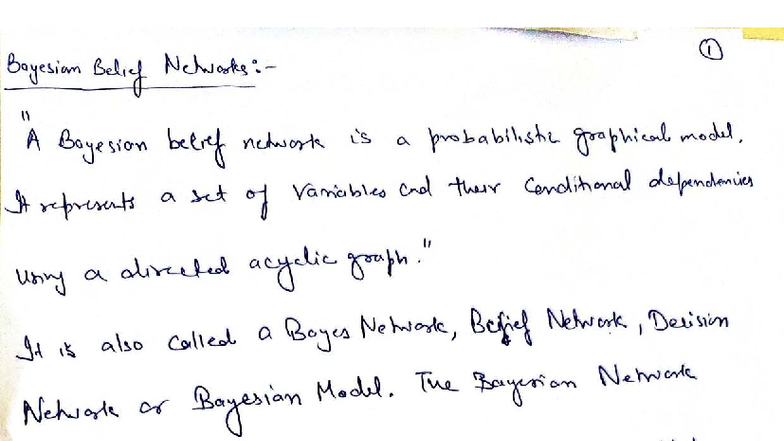 ①
Bayesian Belief Networks:-
"A Bayesian belief network is a probabilistic graphical model.
It represents a set of variables and their conditional dependencies
using a directed acyclic graph."
It is also called a Bayes Network, Belief Network, Decision
Network or Bayesian Model. The Bayesian Network